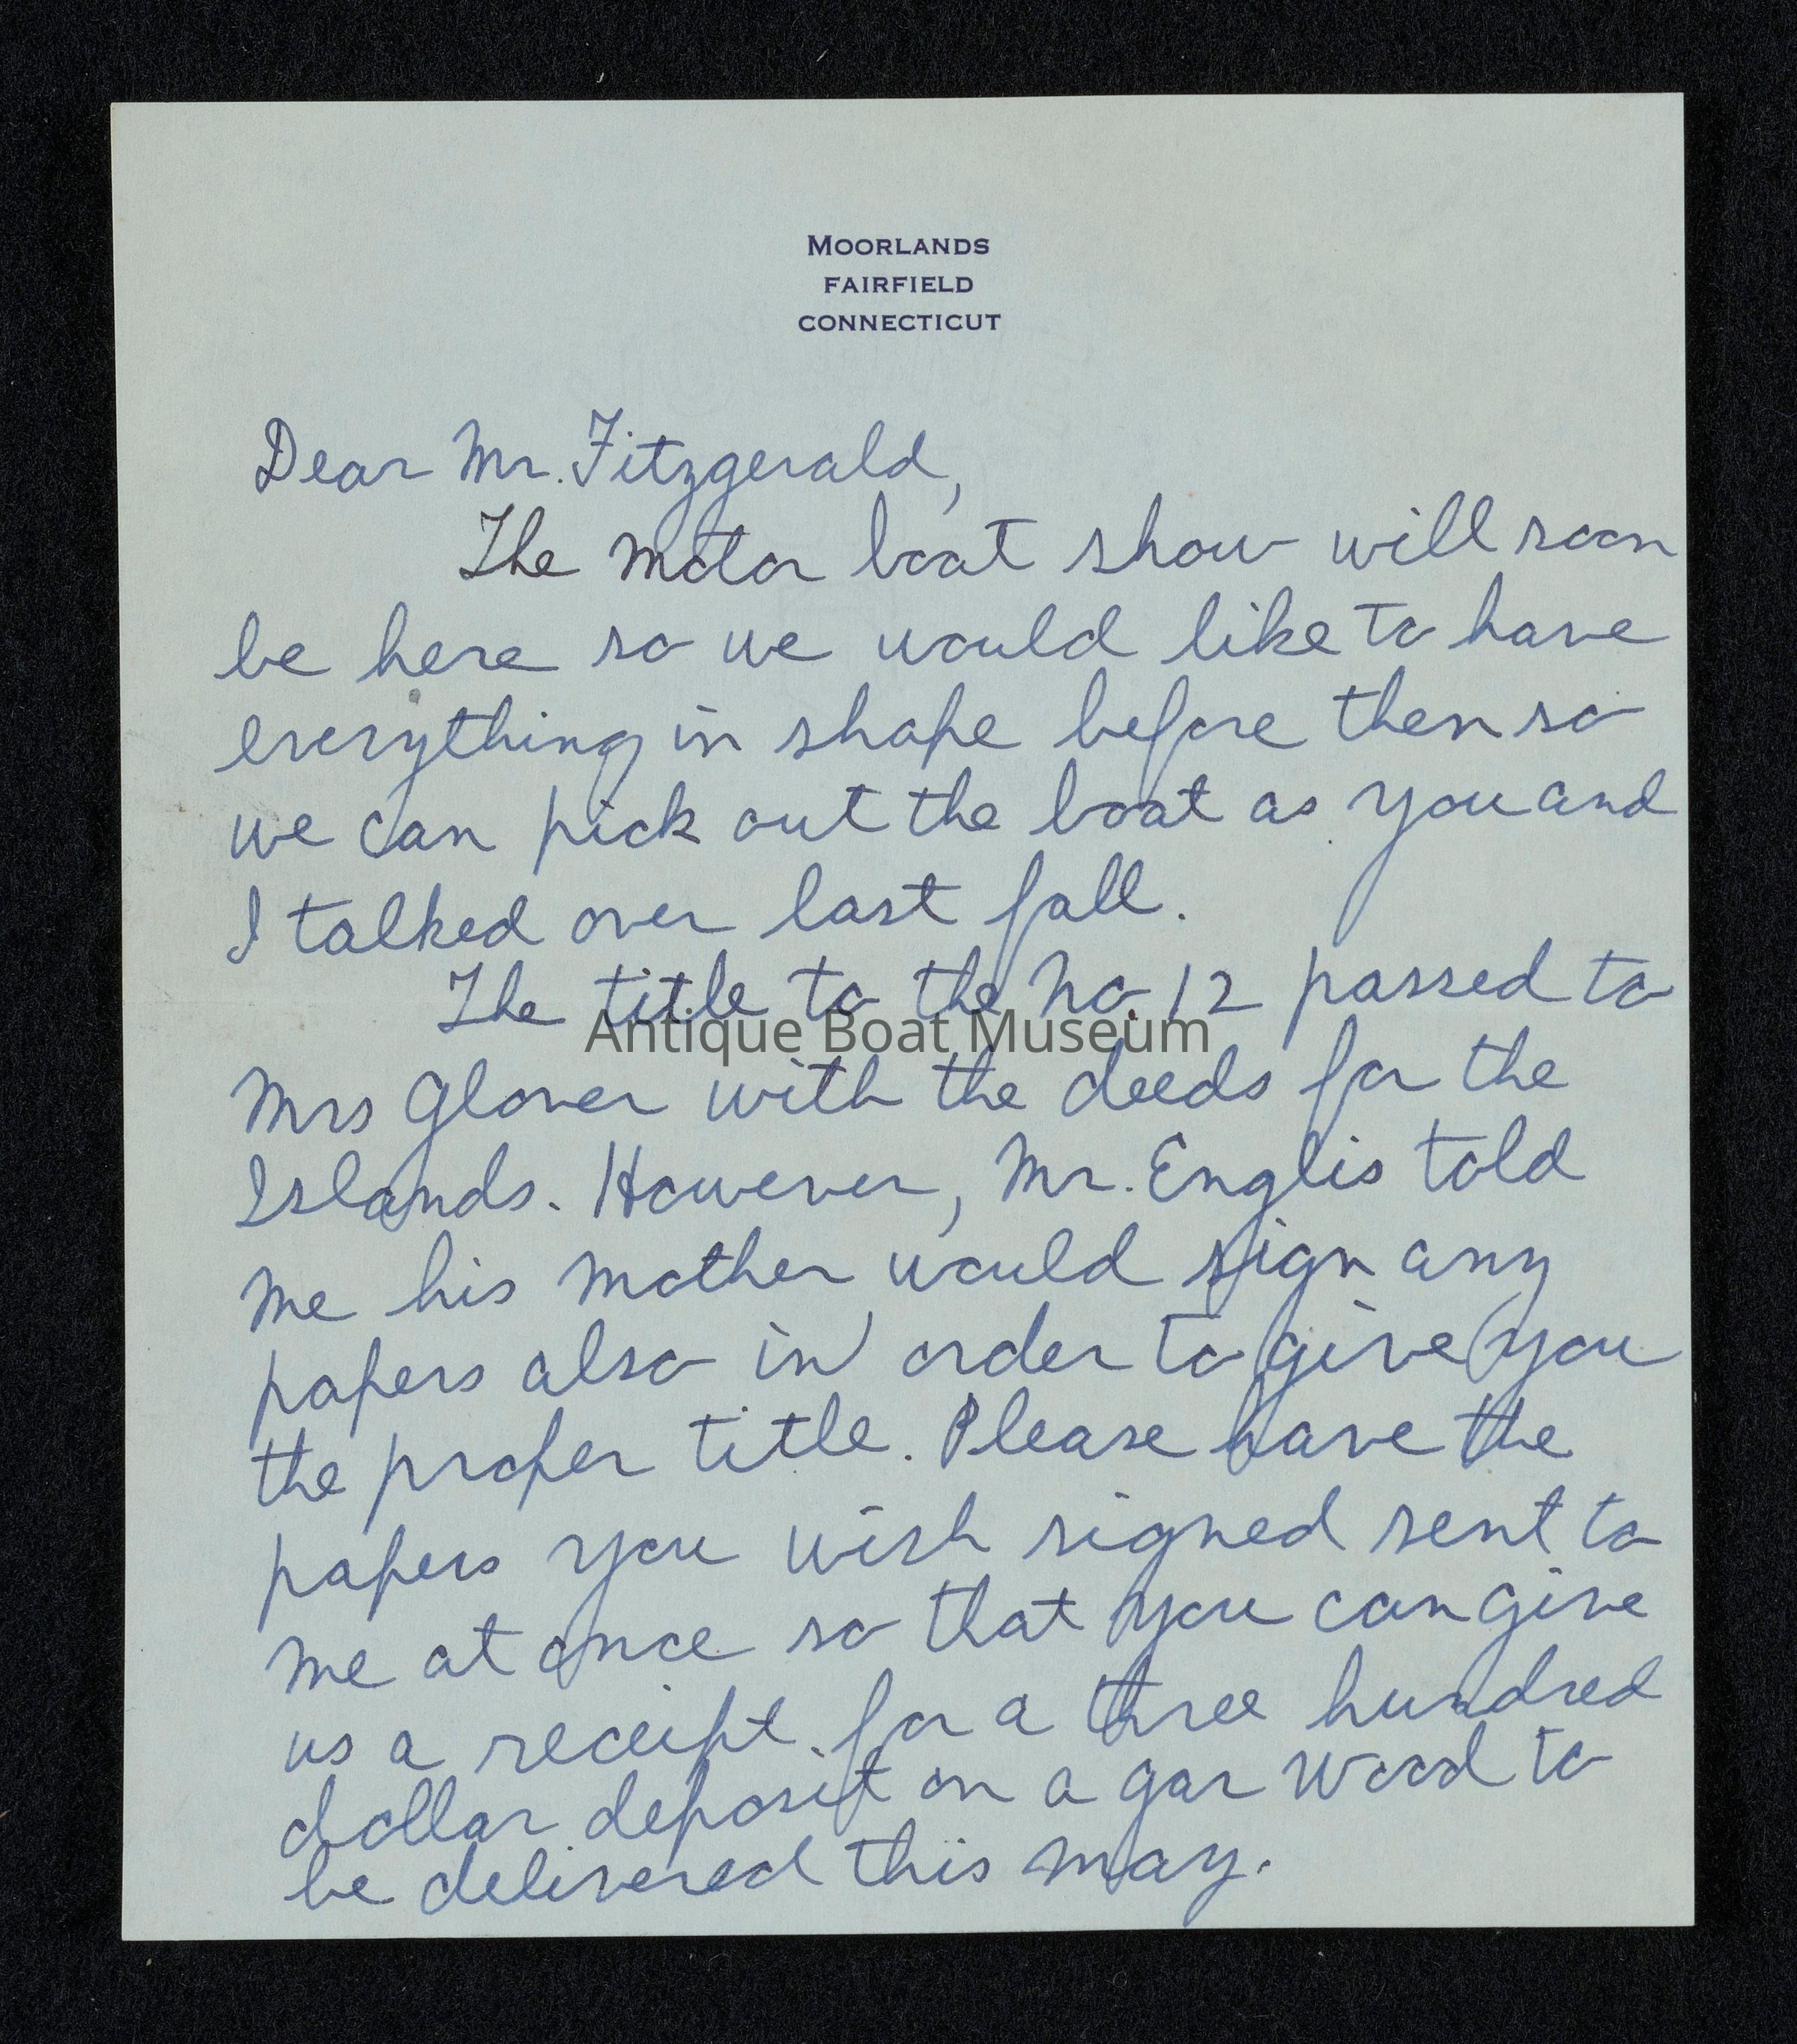 MOORLANDS
FAIRFIELD
CONNECTICUT
Dear Mr. Fitzgerald,
The motor boat show will soon
be here so we would like to have
everything in shape before then so
we can pick out the boat as you and
I talked over last fall.
The title to the No. 12 passed to
Antique Boat Museum
Mrs Glover with the deeds for the
Islands. However, Mr. Englis told
me his mother would sign any
papers also in order to give you
the proper title. Please have the
papers you wish signed sent to
me at once so that you can give
us a receipt for a three hundred
dollar deposit on a gar wood to
be delivered this may.